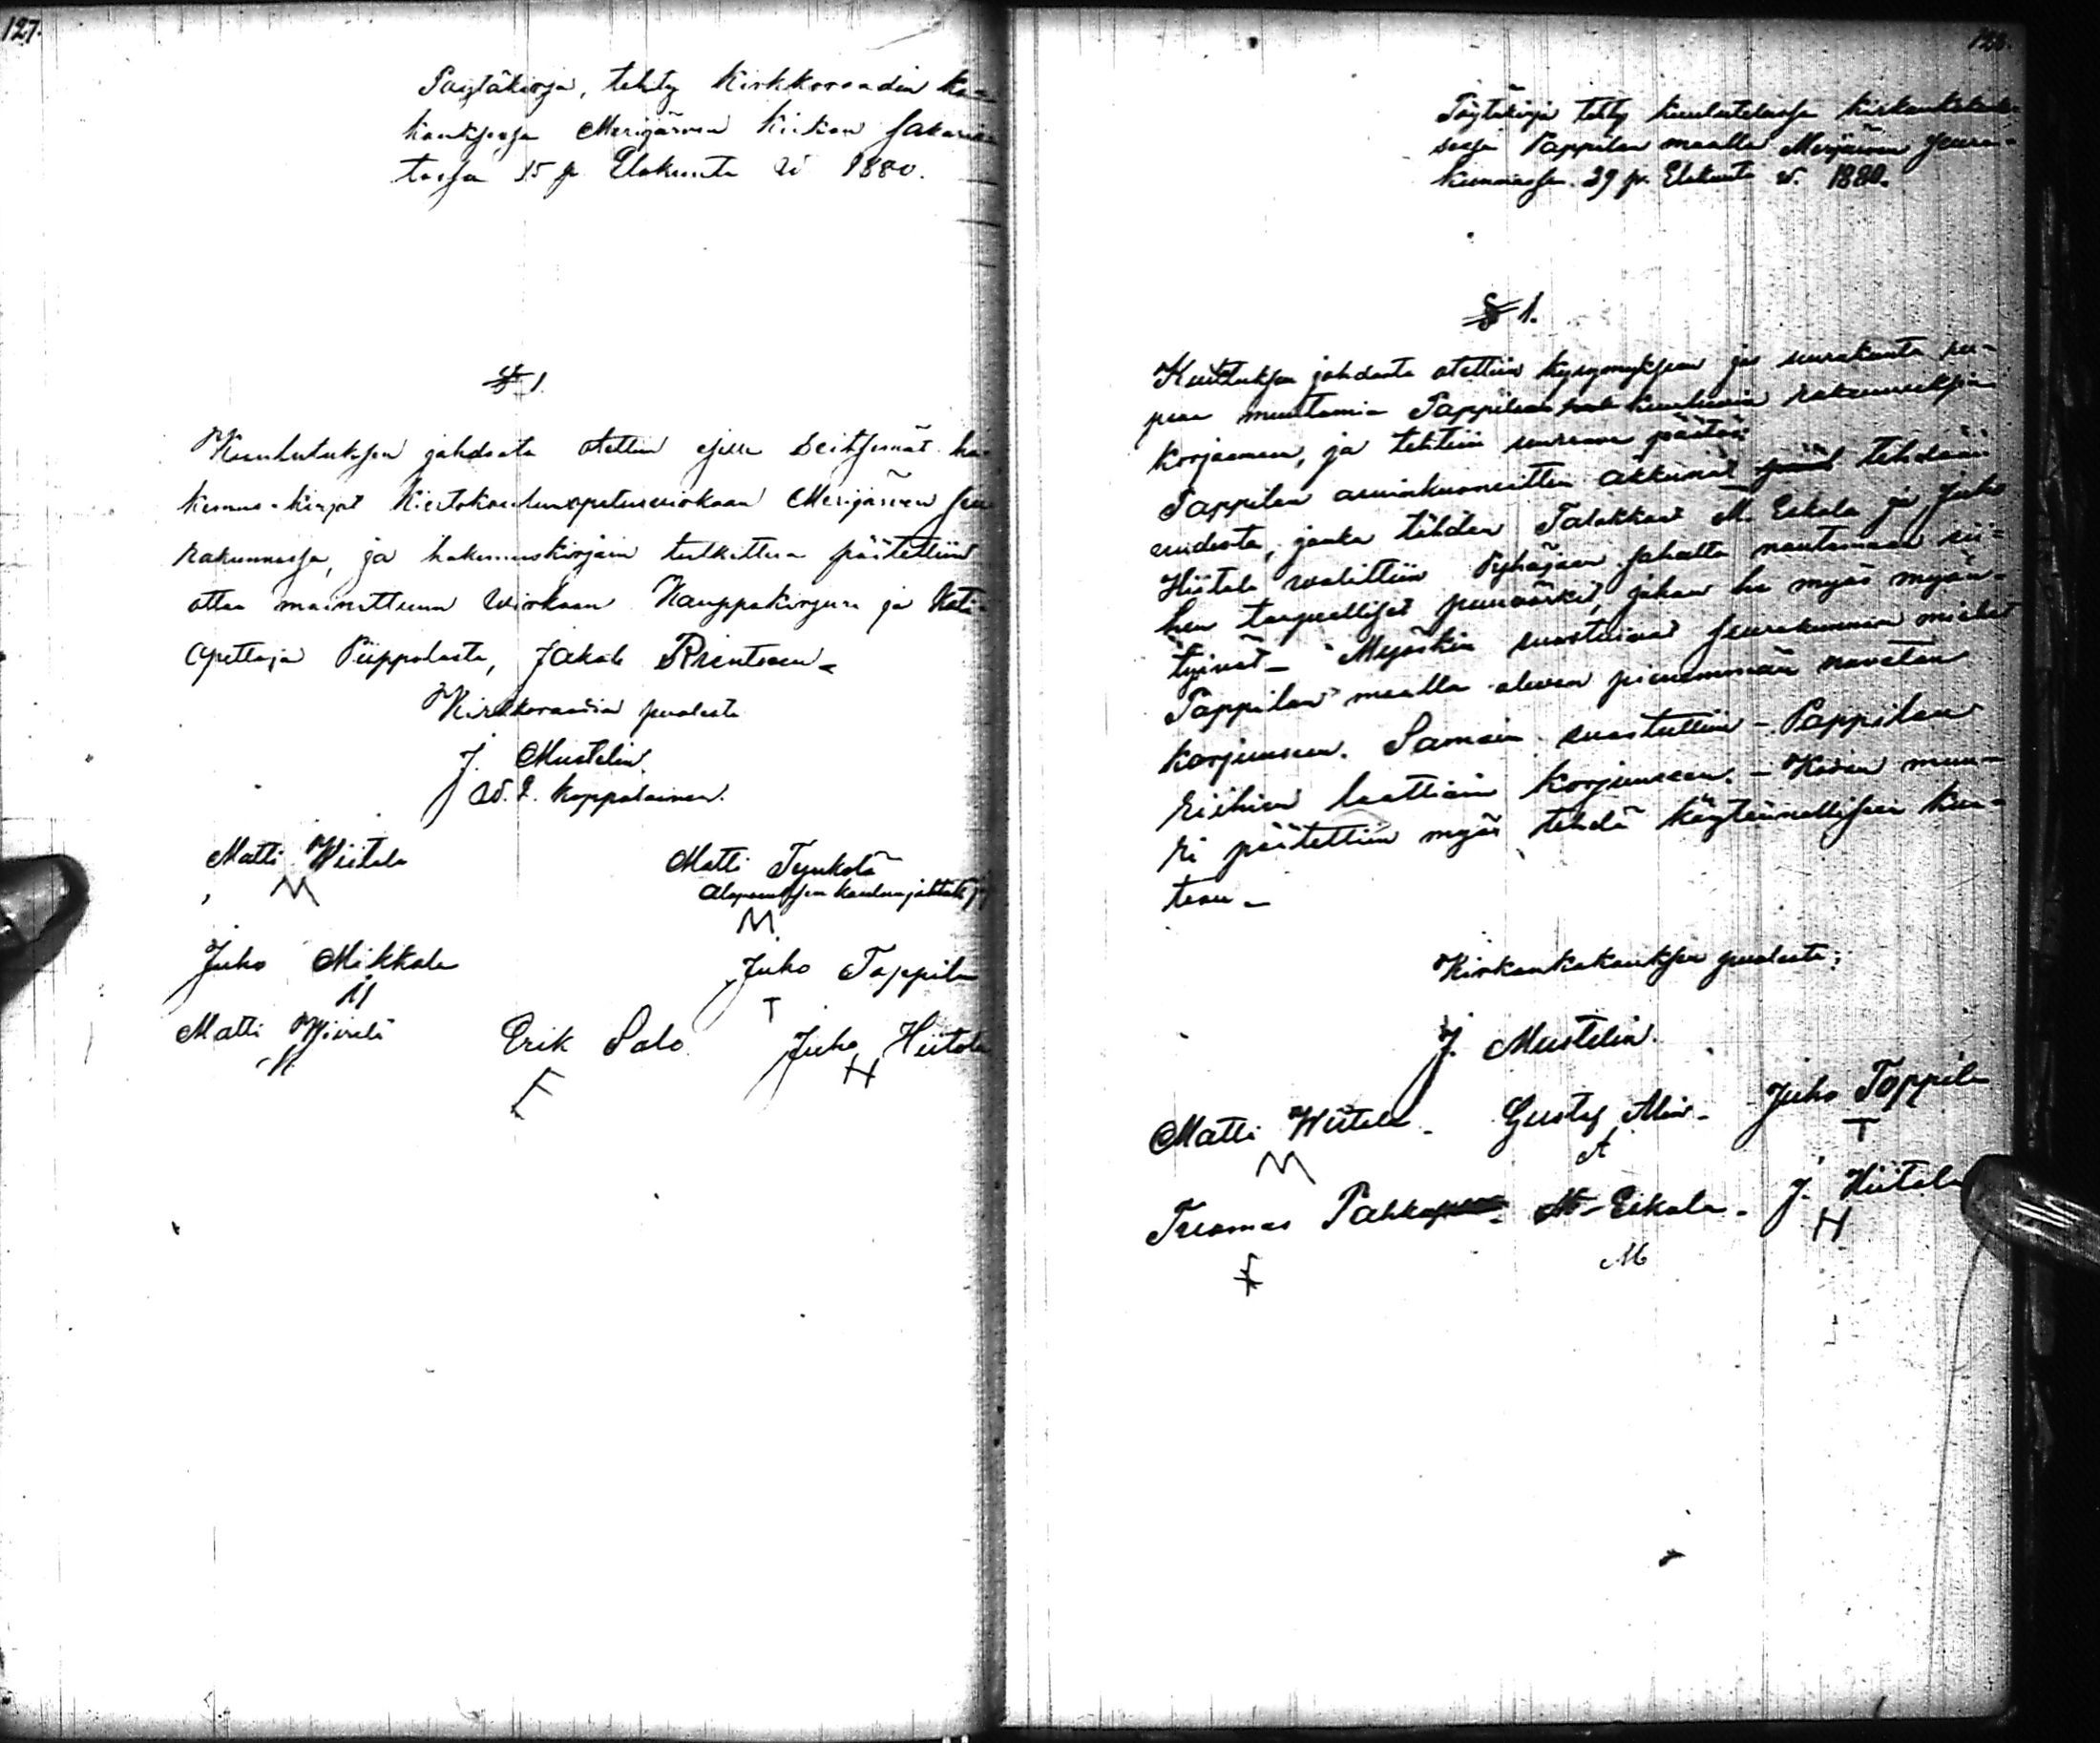 127.
Pöytäkirja, tehty Kirkkoraadin ko-
kouksessa Merijärven Kirkon Sakaris-
tossa 15 p. Elokuuta w 1880.
§ 1.
Kuulutuksen johdosta otettiin esille seitsemät ha-
kemus-kirjat Kiertokoulunopetusvirkaan Merijärven Seu-
rakunnassa, ja hakemuskirjain tutkittua päätettiin
ottaa mainittuun Wirkaan Kauppakirjuri ja Koti-
opettaja Piippolasta, Jakob
Kirkkoraadin puolesta
J. Mustelin
W. I. Koppoloinen.
Matti Wiitala
M
Matti Tynkelä
Alapuustsen koulunjohtok.
M
Juho Mikkola
M
Juho Toppila
T
Matti
Erik Salo
E
Juho Hiitola
H
128.
Pöytäkirja tehty kuulutetussa kirkonkokouk-
sessa Pappilan maalla Merijärven Seura-
kunnassa. 29 p. Elokuuta w. 1880.
§ 1.
Kuulutuksen johdosta otettiin kysymykseen jos seurakunta ru-
peaa muutamia Pappilaan kuuluvia rakennuksia
korjaamaan, ja tehtiin seuraava päätös:
Pappilan asuinhuoneitten akkunat tehdään
uudesta, jonka tähden Talokkaat M. Eskola ja Juho
Hiitola walittiin Pyhäjoen sahalta noutamaan sii-
hen tarpeelliset puuwärkit, johon he myös myön-
tyiwät. Myöskin suostuiwat Seurakunnan miehet
Pappilan maalla olewan pienemmän nawetan
korjuuseen. Samoin suostuttiin Pappilan
riihien laattiain korjuuseen. - Kiwin muu-
ri päätettiin myös tehdä käytännölliseen kun-
toon -
Kirkonkokouksen puolesta;
J. Mustelin.
Matti Wiitala -
M
Gustaf Alin -
A
Juho Toppila
T
Tuomas
M - Eskola -
M
J. Hiitola
H